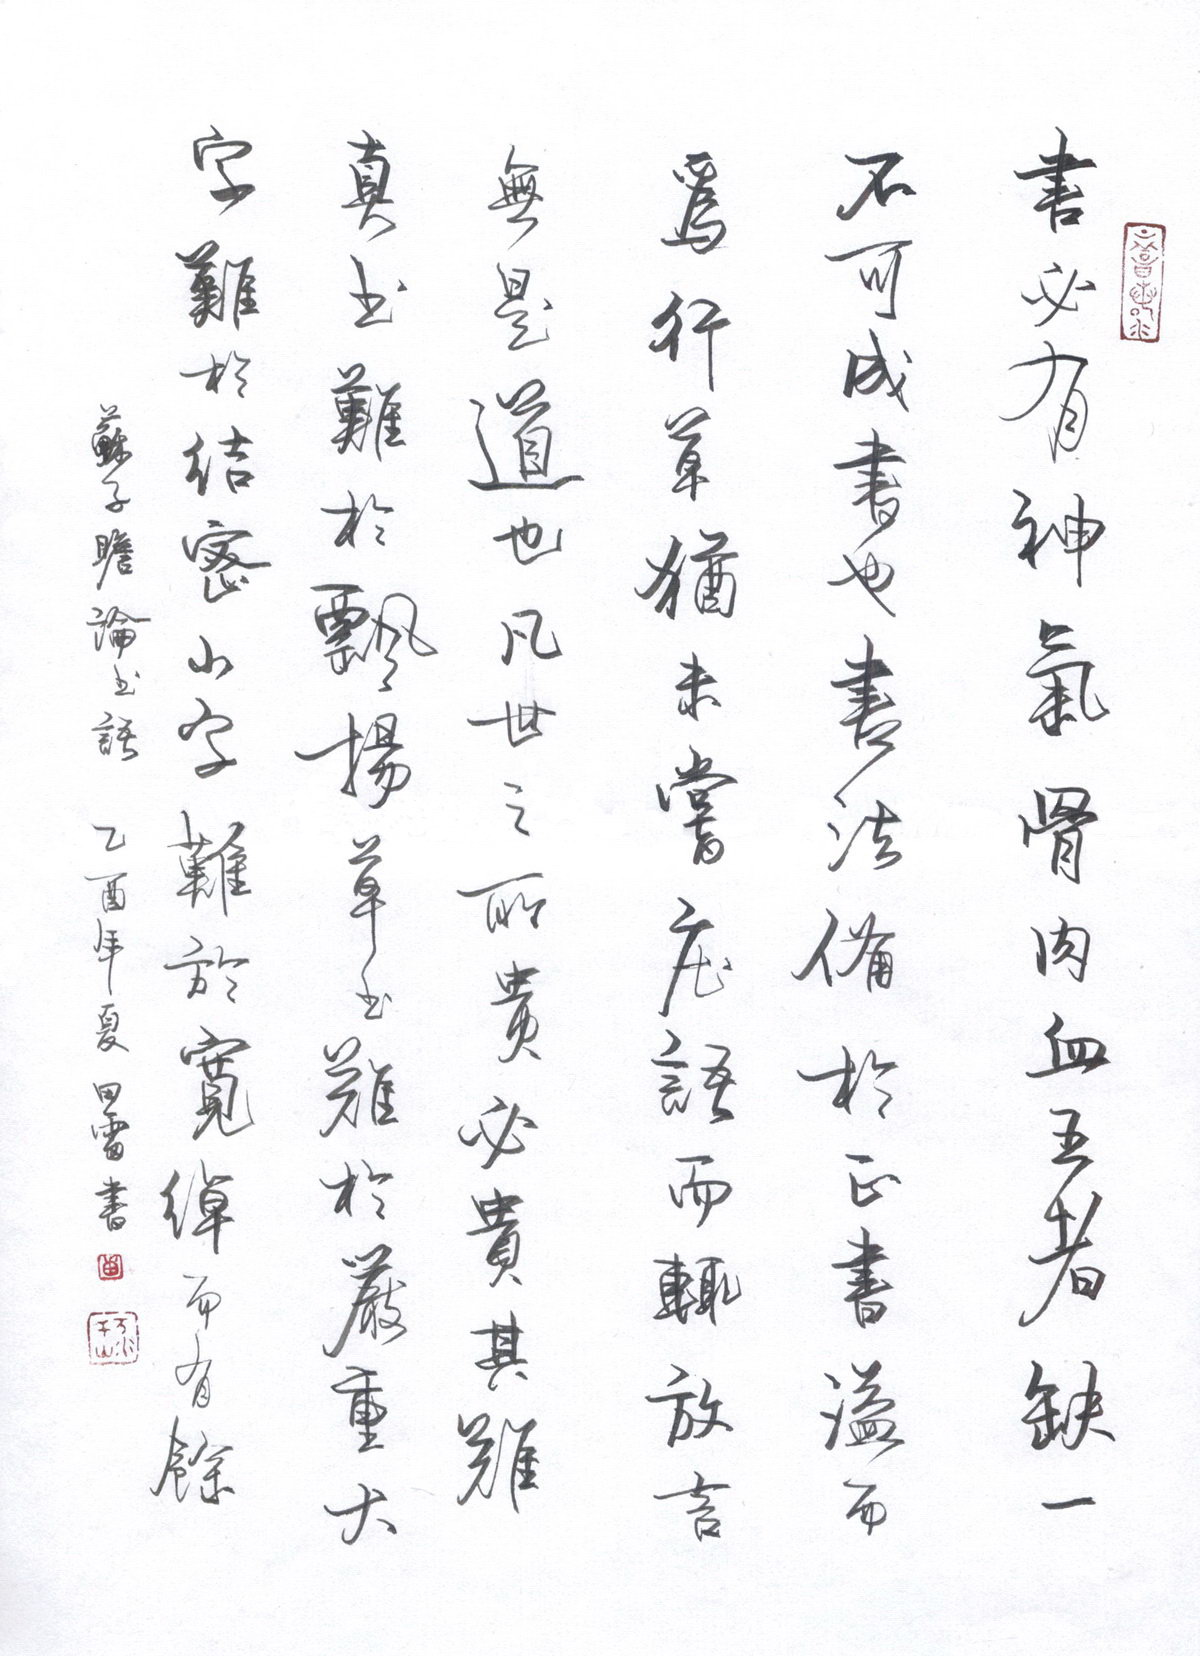 書必有神氣骨肉血五者缺一
不可成書也書法備於正書溢而
為行草猶未嘗庄語而輒放言
無是道也凡世之所貴必貴其難
真书難於飄揚草书難於嚴重大
字難於結密小字難於寬綽而有餘
蘇子瞻論书語 乙酉年夏 田雷書